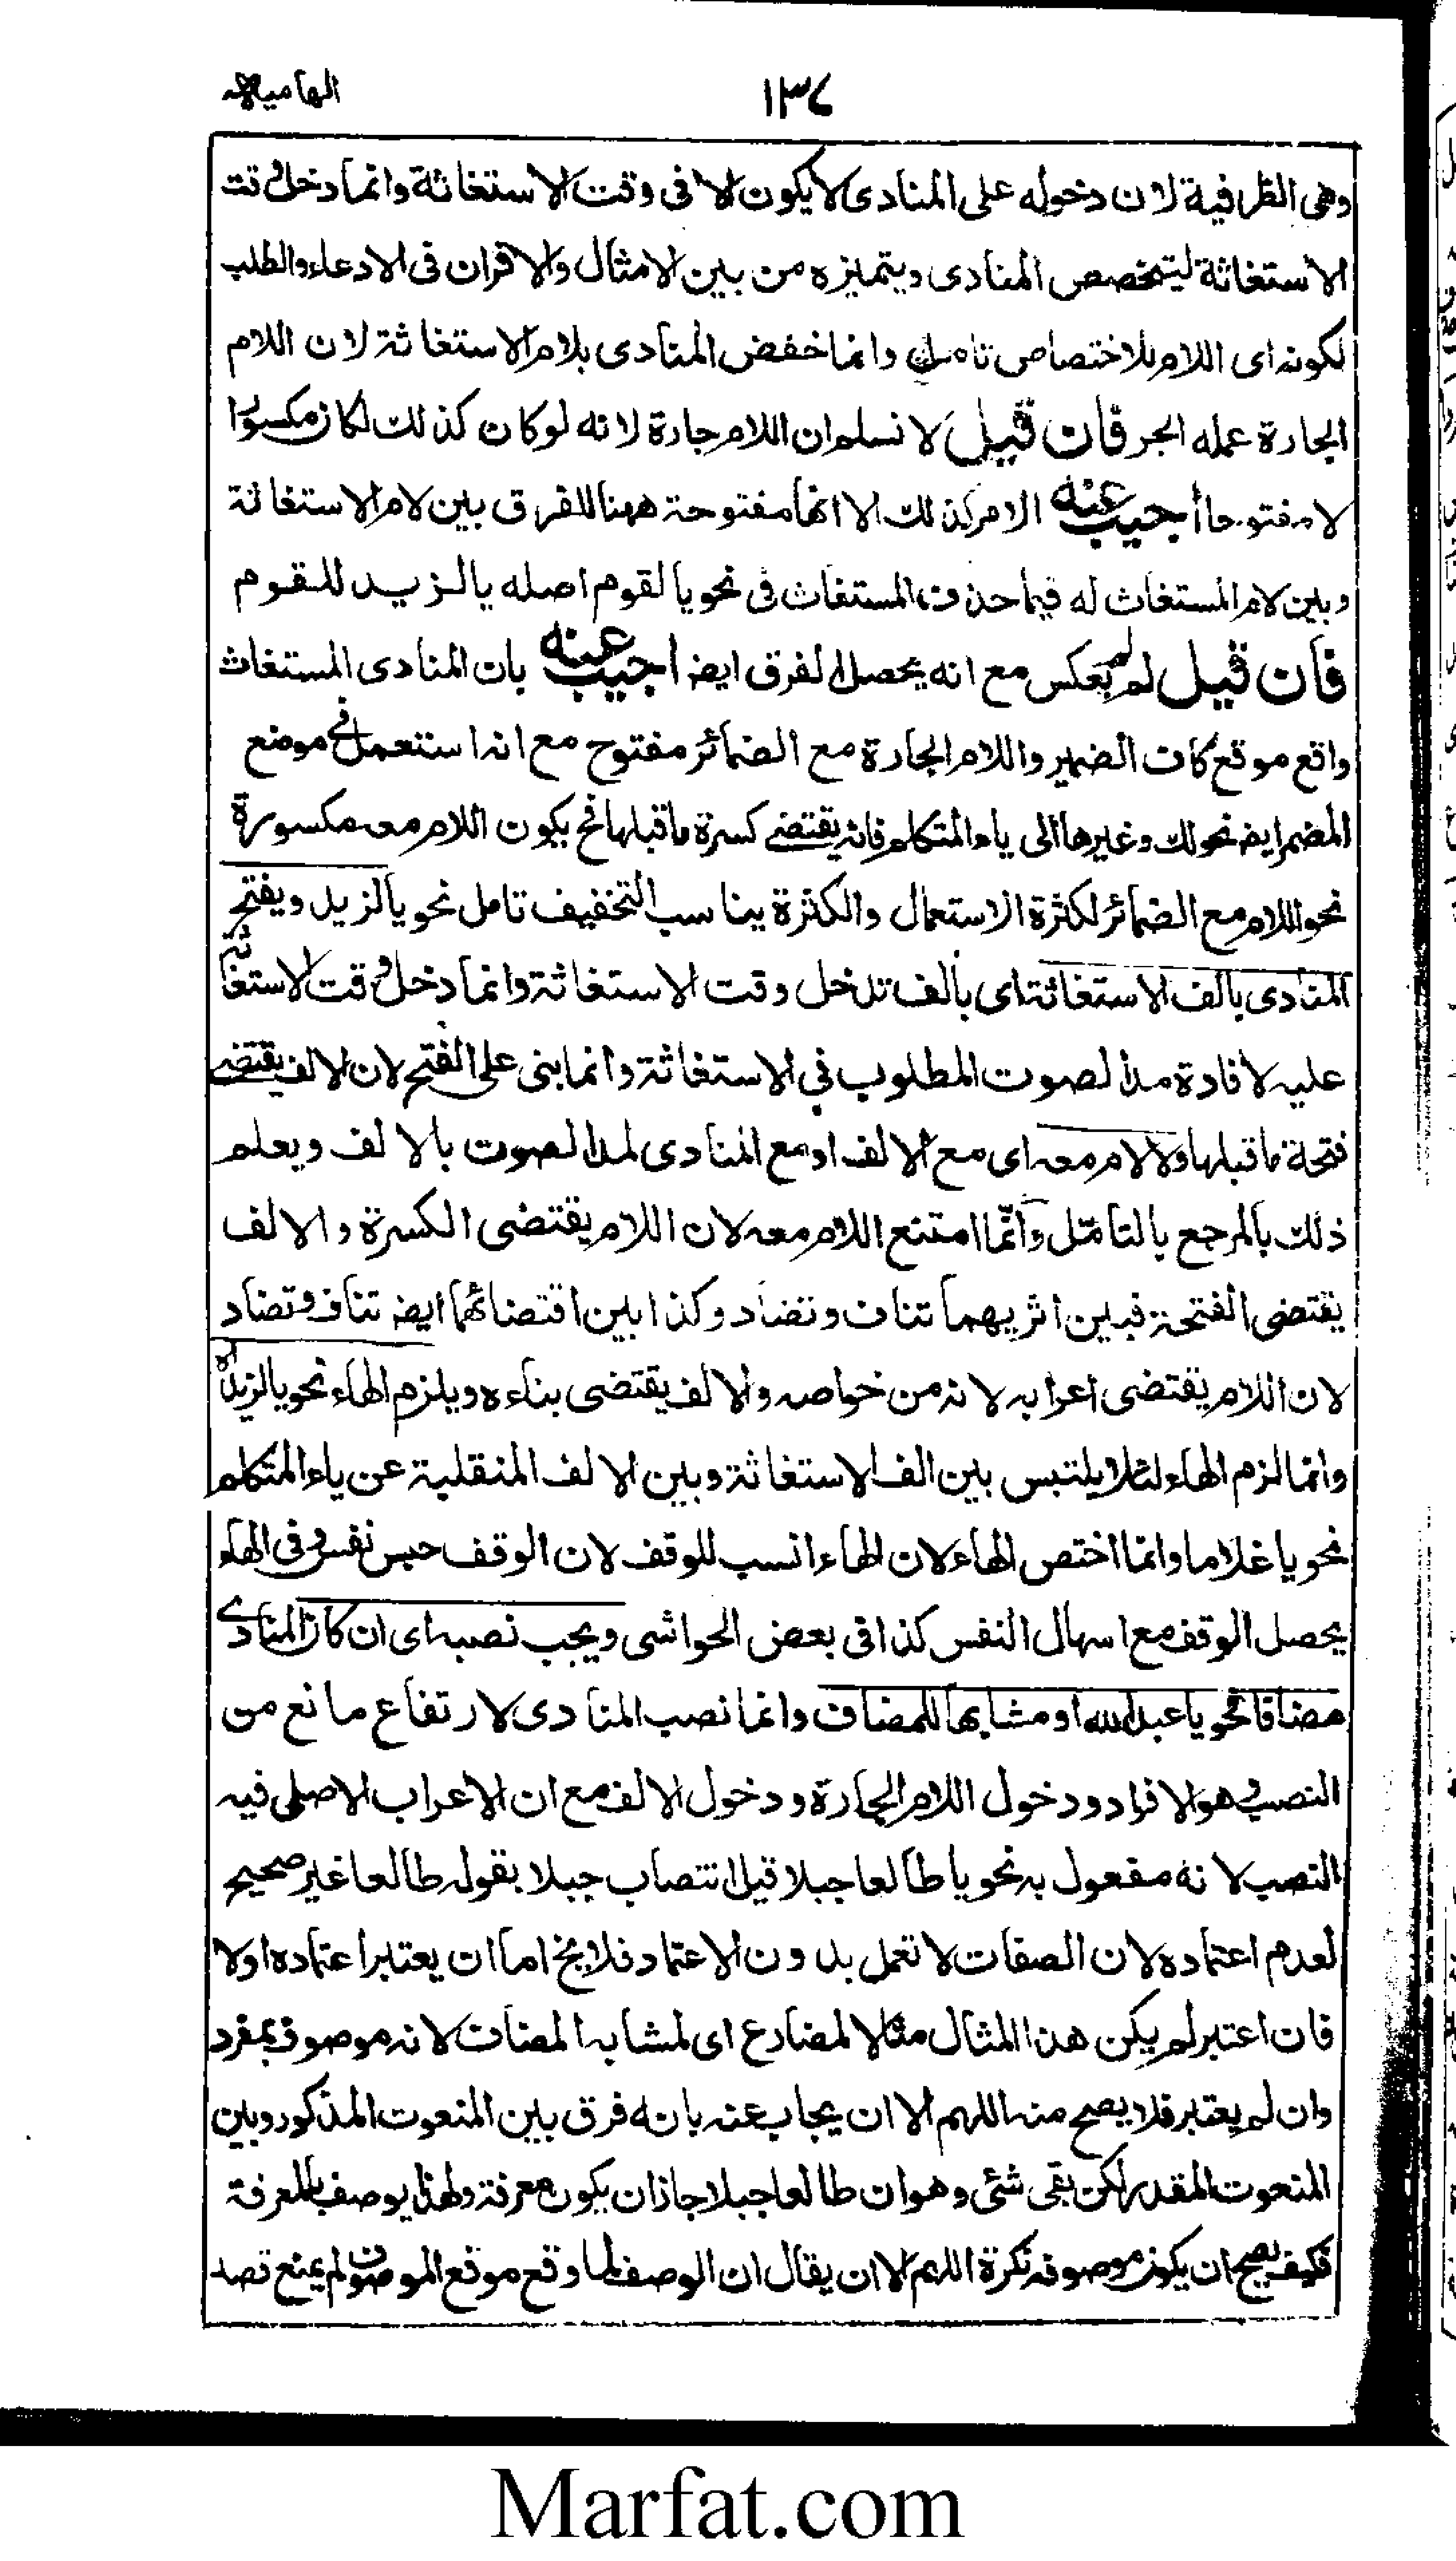 الهاميه
١٣٧
وهي الظرافية لان دخوله على المنادى لا يكون الا فى وقت الاستغاثة وانما دخل وقت
الاستغاثة ليتخصص المنادى ويتميزه من بين الامثال والاقران فى الادعاء والطلب
لكونه اى اللام للاختصاص تامل وانما خفض المنادى بلام الاستغاثة لان اللام
الجارة عمله الجر فان قيل لا نسلم ان اللام جارة لانه لو كان كذلك لكان مكسورا
لا مفتوحا أجيب عنه الامر كذلك الا انها مفتوحة ههنا للفرق بين لام الاستغاثة
وبين لام المستغاث له فيما حذف المستغاث فى نحو يا لقوم اصله يا لزيد للقوم
فان قيل لم لم يعكس مع انه يحصل الفرق ايضا اجيب عنه بان المنادى المستغاث
واقع موقع كاف الضمير واللام الجارة مع الضمائر مفتوح مع انه استعمل فى موضع
المضمر ايضا نحو لك وغيرها الى ياء المتكلم فانه يقتضى كسرة ما قبلها فح يكون اللام معه مكسورة
نحو اللام مع الضمائر لكثرة الاستعمال والكثرة يناسب التخفيف تامل نحو يا لزيد ويفتح
المنادى بالف الاستغاثة اى بالف تدخل وقت الاستغاثة وانما دخل وقت الاستغاثة
عليه لافادة مد الصوت المطلوب فى الاستغاثة وانما بنى على الفتح لان الالف يقتضى
فتحة ما قبلها ولا لام معه اى مع الالف او مع المنادى لمد الصوت بالالف ويعلم
ذلك بالمرجع بالتامّل وانّما امتنع اللام معه لان اللام يقتضى الكسرة والالف
يقتضى الفتحة فبين اثريهما تناف وتضاد وكذا بين اقتضائهما ايضا تناف وتضاد
لان اللام يقتضى اعرابه لانه من خواصه والالف يقتضى بناءه ويلزم الهاء نحو يا لزيداه
وانما لزم الهاء لئلا يلتبس بين الف الاستغاثة وبين الالف المنقلبة عن ياء المتكلم
نحو يا غلاما وانما اختص الهاء لان الهاء انسب للوقف لان الوقف حبس نفس وفى الهاء
يحصل الوقف مع اسهال النفس كذا فى بعض الحواشى ويجب نصبه اى ان كان المنادى
مضافا نحو يا عبد الله او مشابها للمضاف وانما نصب المنادى لارتفاع مانع من
النصب وهو الافراد ودخول اللام الجارة ودخول الالف مع ان الاعراب الاصلى فيه
النصب لانه مفعول به نحو يا طالعا جبلا قيل انتصاب جبلا بقوله طالعا غير صحيح
لعدم اعتماده لان الصفات لا تعمل بدون الاعتماد فلا يخ اما ان يعتبر اعتماده اولا
فان اعتبر لم يكن هذا المثال مثالا لمضارع اى لمشابه المضاف لانه موصوف بمفرد
وان لم يعتبر فلا يصح منه اللهم الا ان يجاب عنه بانه فرق بين المنعوت المذكور وبين
المنعوت المقدر لكن بقى شئى وهو ان طالعا جبلا جاز ان يكون معرفة ولهذا يوصف بالمعرفة
فكيف يصح ان يكون موصوفه نكرة اللهم الا ان يقال ان الوصف لما وقع موقع الموصوف لم يمنع قصد
Marfat.com